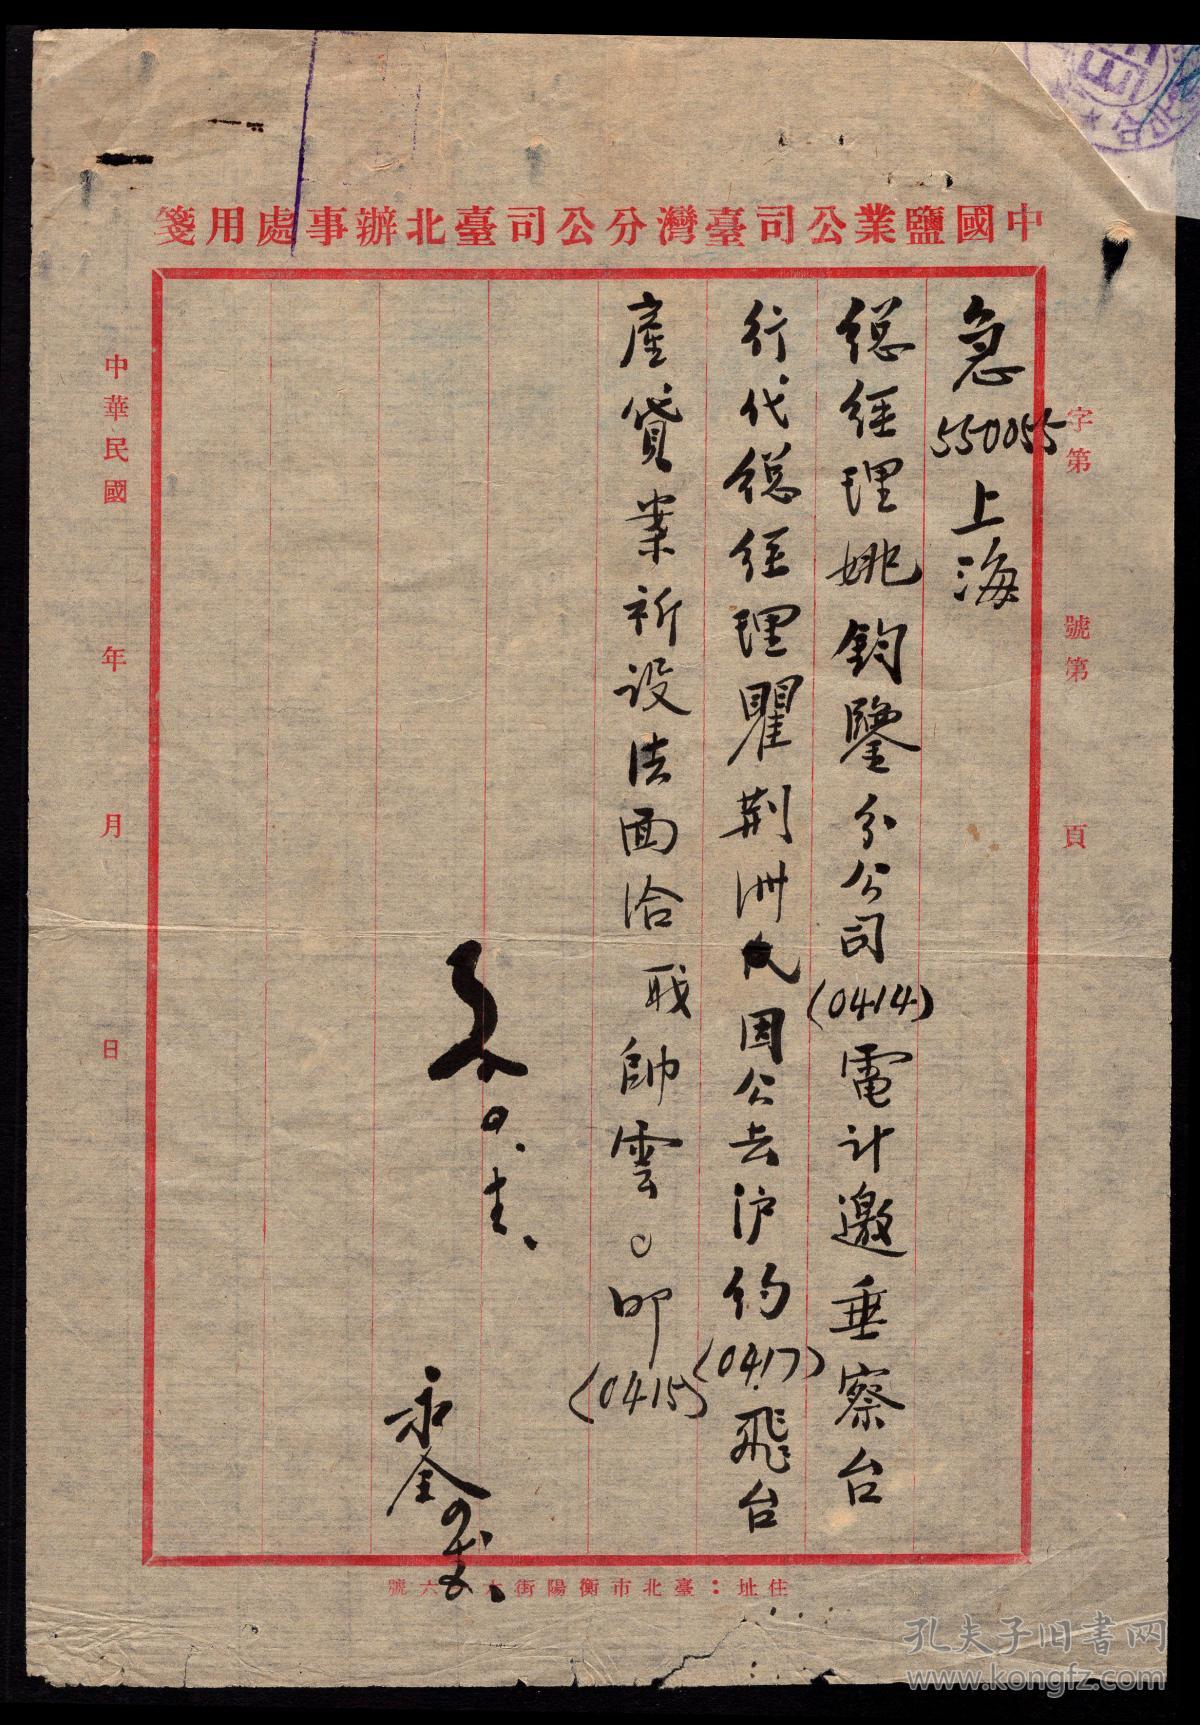 中國鹽業公司臺灣分公司臺北辦事處用箋
字第 號第 頁
急 550055 上海
総経理姚鈞鑒分公司(0414)電計邀垂察台
行代総経理瞿荆洲氏因公去沪約(0417)飛台
產貸業祈設法面洽職帥雲叩(0415)
永金
中華民國 年 月 日
住址：臺北市衡陽街六號
孔夫子旧书网
www.kongfz.com